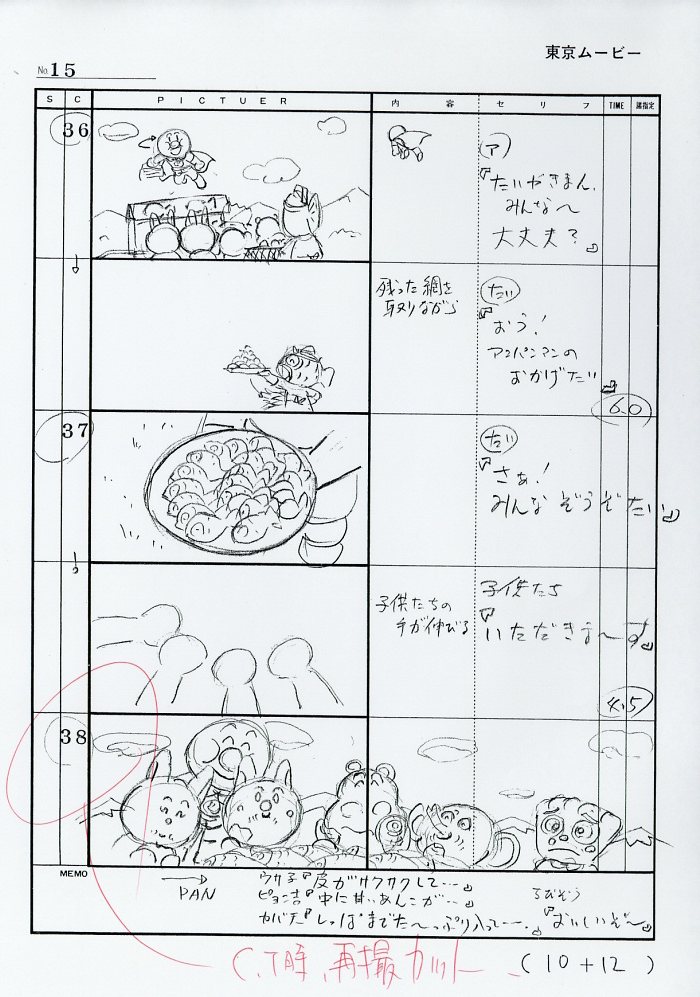 東京ムービー
No. 15
S C PICTUER 内容 セリフ TIME
36
(ア)
『たいやきまん、
みんな〜
大丈夫?』
残った網を
取りながら
(たい)
『おう!
アンパンマンの
おかげたい』
6.0
37
(たい)
『さぁ!
みんな ぞうぞ たい』
子供たちの
手が伸びる
子供たち
『いただきま〜す』
4.5
38
MEMO
PAN
ウサ子『皮がサクサクして…』
ピョン吉『中に甘いあんこが…』
カバ夫『しっぽまでた〜っぷり入って…』
ちびぞう
『おいしいぞ〜』
C.T時、再撮カット
(10+12)